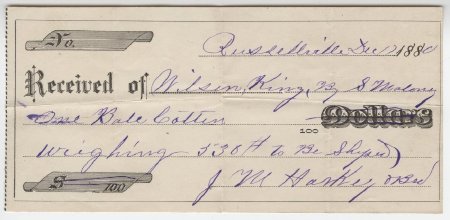 No.
Russellville, Dec 1880
Received of Wilson King, By S Maloney
One Bale Cotton
100 Dollars
Weighing 530 # to Be Shiped
$ 100. J M Harkey